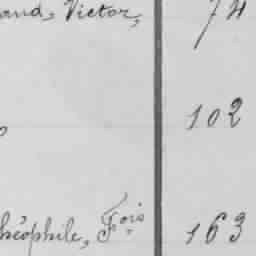 and, Victor, 74
102
héophile, Fois 163